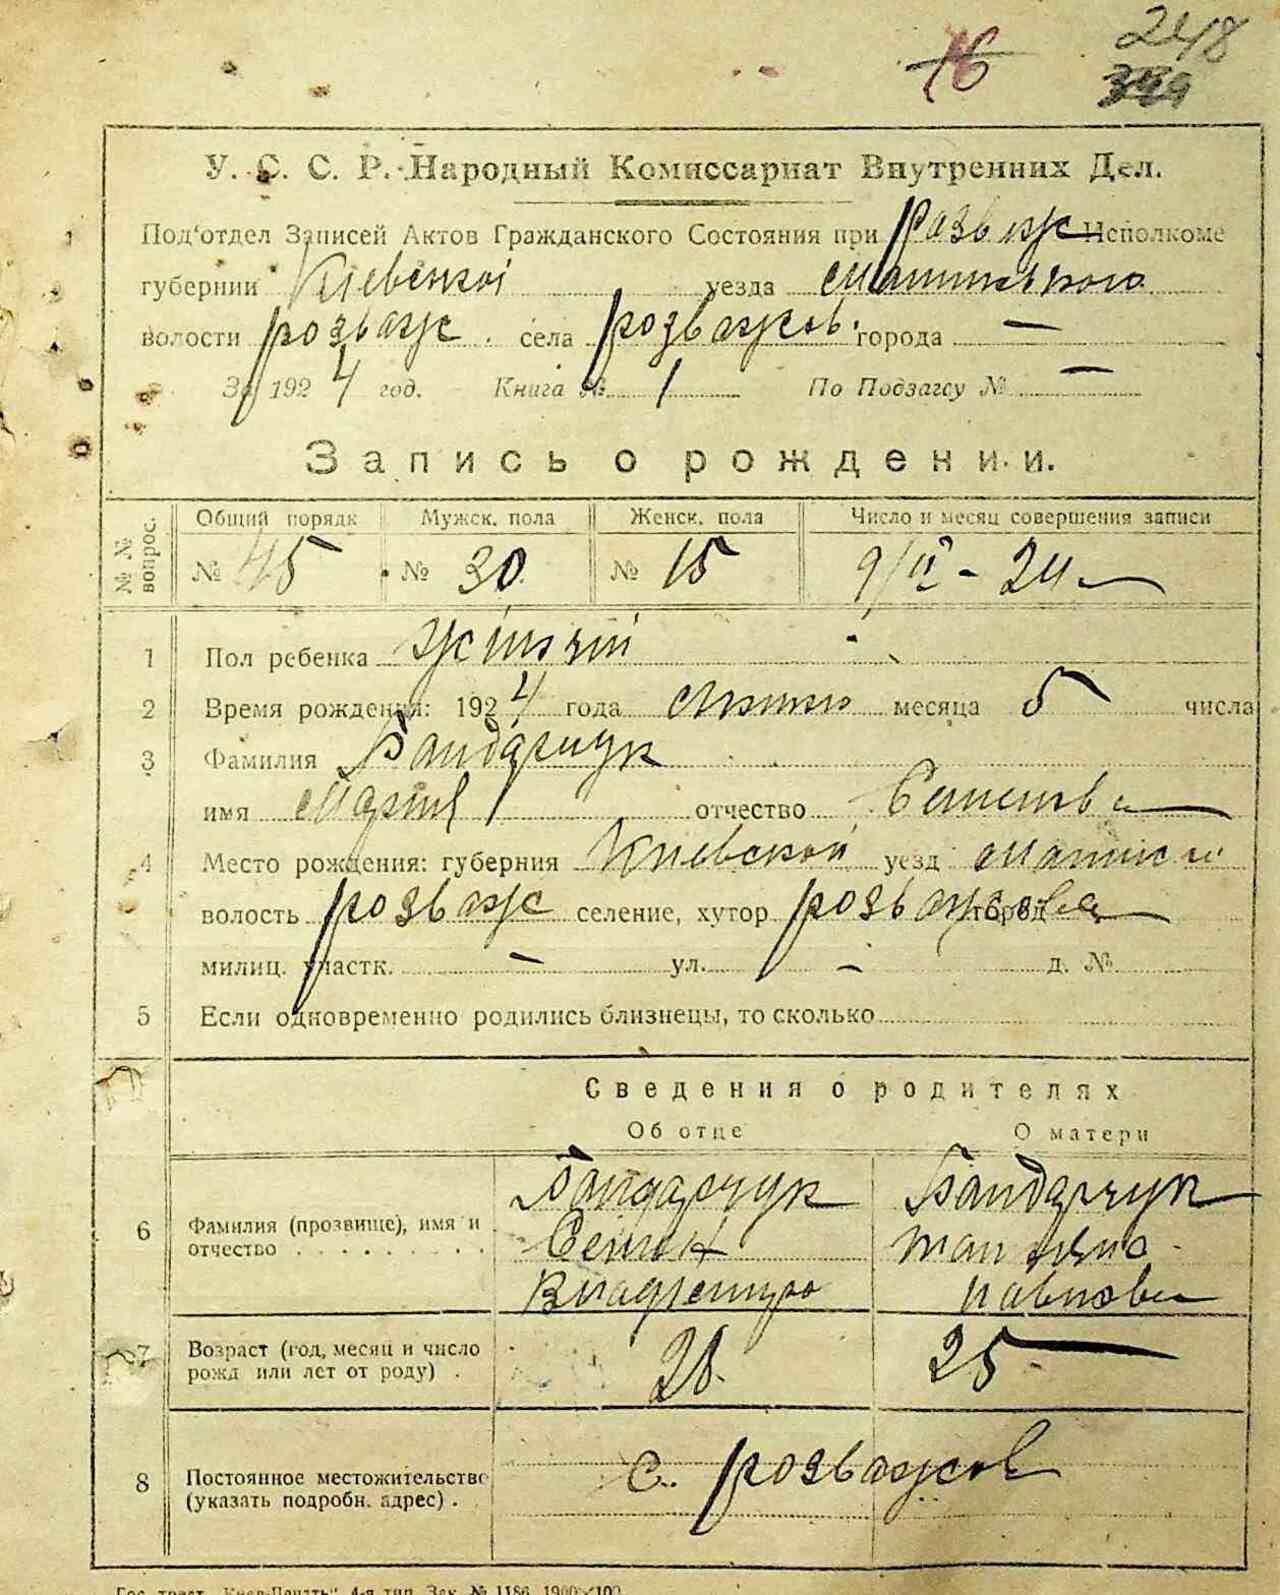 16 248
У. С. С. Р. Народный Комиссариат Внутренних Дел.
Под'отдел Записей Актов Гражданского Состояния при Розваж Исполкоме
губернии Киевской уезда
волости розваж. села розважов. города —
За 1924 год. Книга № 1 По Подзагсу № —
Запись о рождении.
№ № вопрос. Общий порядк Мужск. пола Женск. пола Число и месяц совершения записи
№ 45 № 30 № 15
1 Пол ребенка жіночій
2 Время рождения: 1924 года месяца 5 числа
3 Фамилия Бандарчук
имя отчество
4 Место рождения: губерния Киевской уезд
волость розваж селение, хутор розважова город
милиц. участк. — ул. — д. №
5 Если одновременно родились близнецы, то сколько
Сведения о родителях
Об отце О матери
Бандарчук Бандарчук
6 Фамилия (прозвище), имя и
отчество
Павлова
7 Возраст (год, месяц и число
рожд или лет от роду) . 28. 25
8 Постоянное местожительство
(указать подробн. адрес) . с. розважов
Гос. трест „Киев-Печать“ 4-я тип. Зак. № 1186. 1900×100